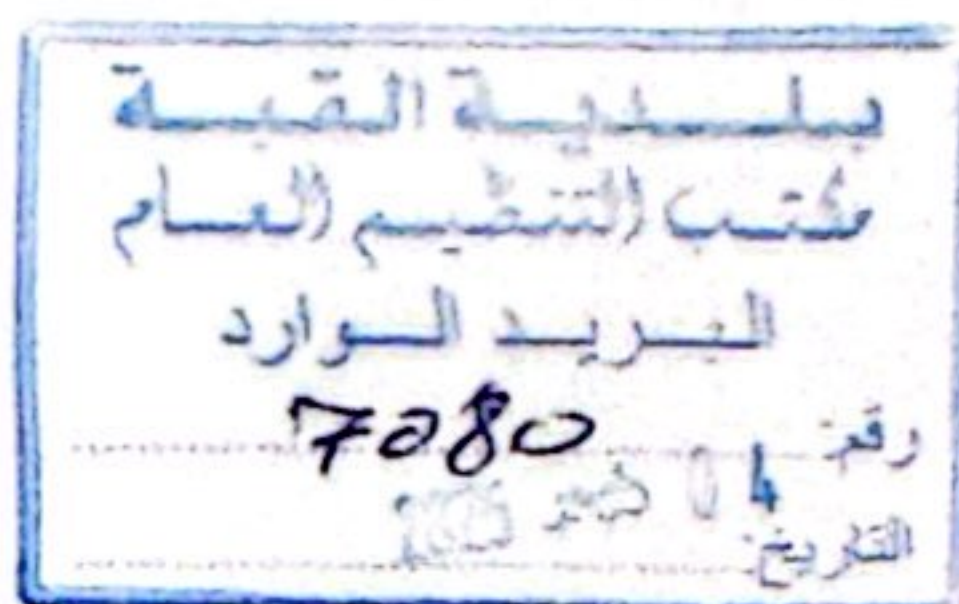 بلدية القبة
مكتب التنظيم العام
البريد الوارد
رقم: 7280
التاريخ: 04